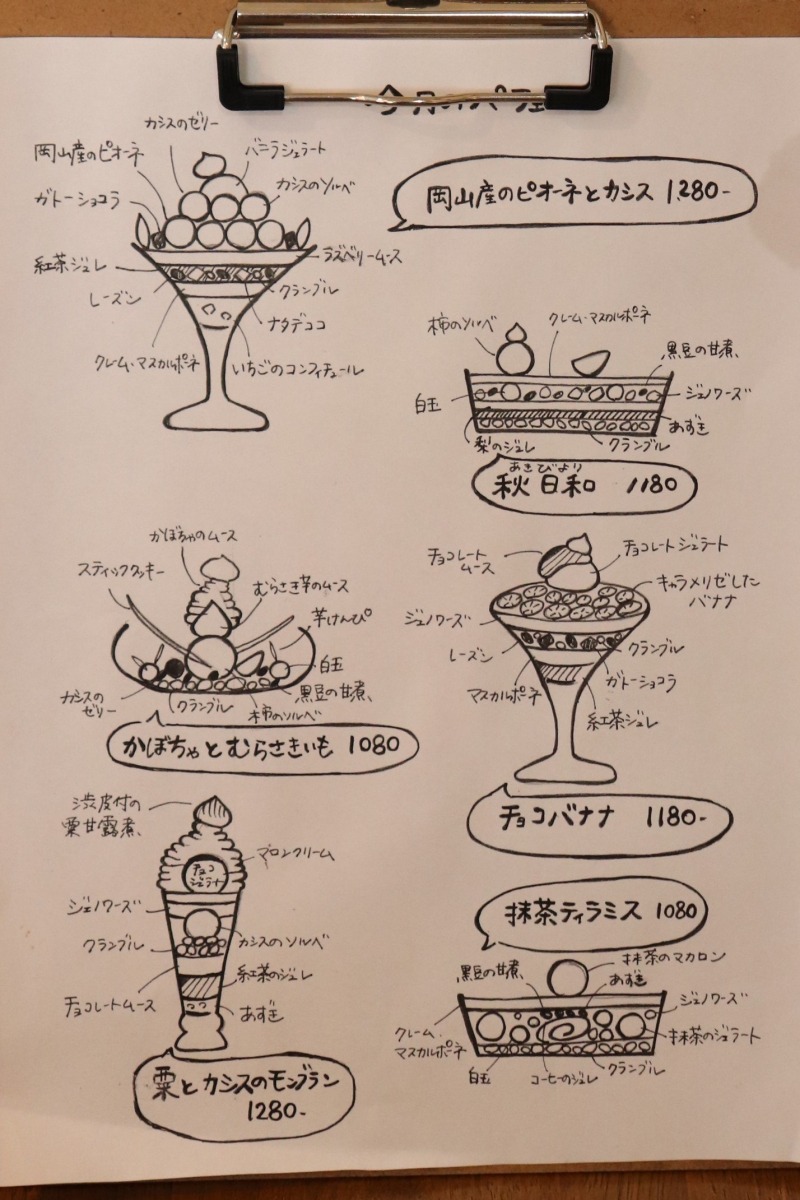 今月のパフェ
カシスのゼリー
岡山産のピオーネ
バニラジェラート
ガトーショコラ
カシスのソルベ
紅茶ジュレ
ラズベリームース
レーズン
クランブル
ナタデココ
クレーム・マスカルポーネ
いちごのコンフィチュール
岡山産のピオーネとカシス 1.280-
柿のソルベ
クレーム・マスカルポーネ
黒豆の甘煮
白玉
ジェノワーズ
あずき
梨のジュレ
クランブル
あきびより
秋日和 1180
かぼちゃのムース
スティッククッキー
むらさき芋のムース
芋けんぴ
白玉
カシスの
ゼリー
クランブル
柿のソルベ
黒豆の甘煮
かぼちゃとむらさきいも 1080
チョコレート
ムース
チョコレートジェラート
キャラメリゼした
バナナ
ジェノワーズ
レーズン
クランブル
マスカルポーネ
ガトーショコラ
紅茶ジュレ
チョコバナナ 1180-
渋皮付の
栗甘露煮
マロンクリーム
チョコ
ジェラート
ジェノワーズ
クランブル
カシスのソルベ
紅茶のジュレ
チョコレートムース
あずき
栗とカシスのモンブラン
1280-
抹茶ティラミス 1080
抹茶のマカロン
黒豆の甘煮
あずき
ジェノワーズ
クレーム・
マスカルポーネ
抹茶のジェラート
白玉
コーヒーのジュレ
クランブル